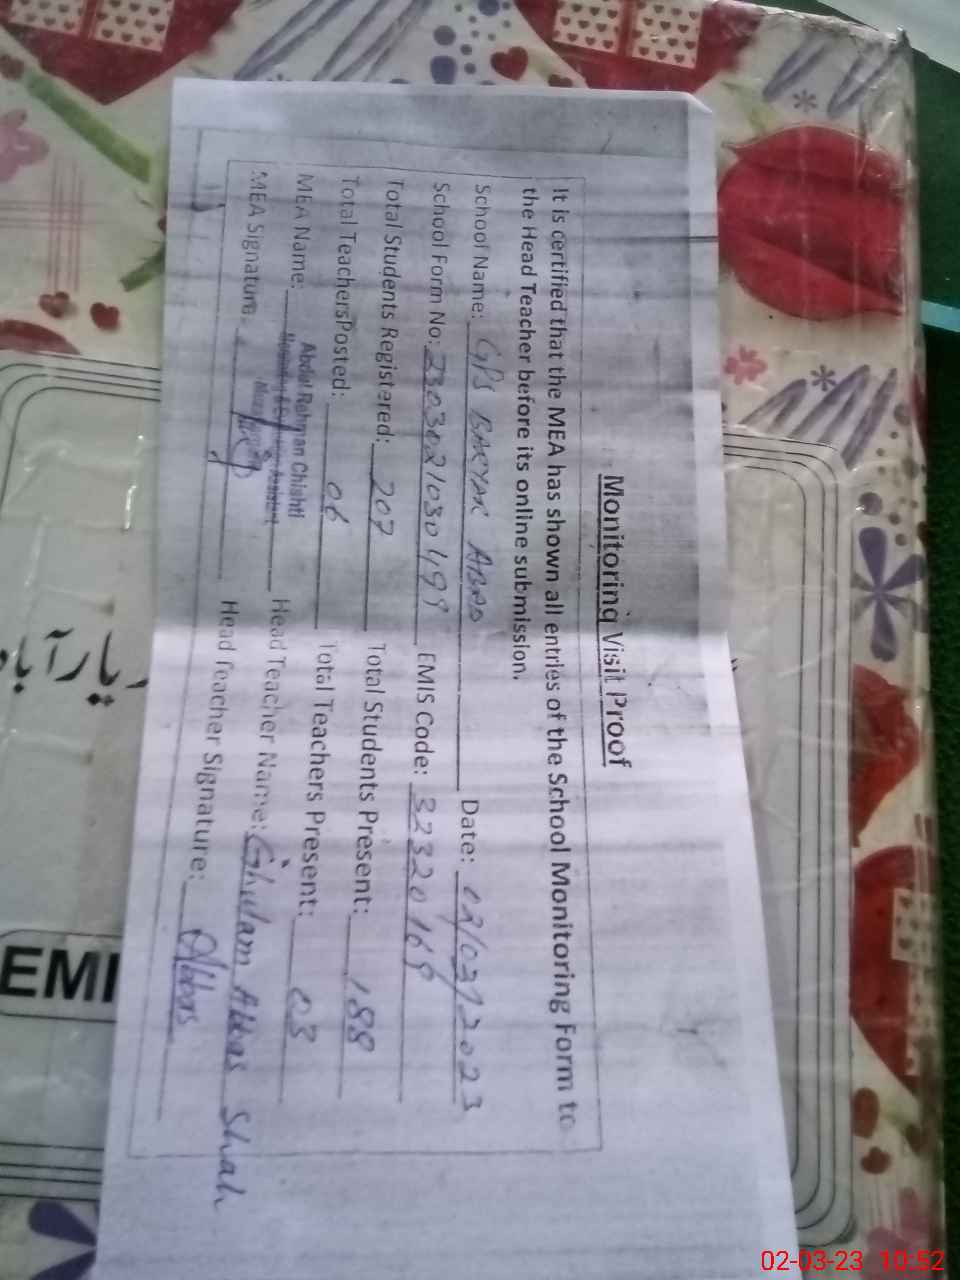 Monitoring Visit Proof
It is certified that the MEA has shown all entries of the School Monitoring Form to
the Head Teacher before its online submission.
School Name: GPS ABRO Date: 02/03/2023
School Form No: 2303021030499 EMIS Code: 32320169
Total Students Registered: 207 Total Students Present: 188
Total TeachersPosted: 06 Total Teachers Present: 03
MEA Name: Abdul Rehman Chishti Head Teacher Name: Ghulam Abbas Shah
MEA Signature: Head Teacher Signature: Abbas
EMI
02-03-23 10:52